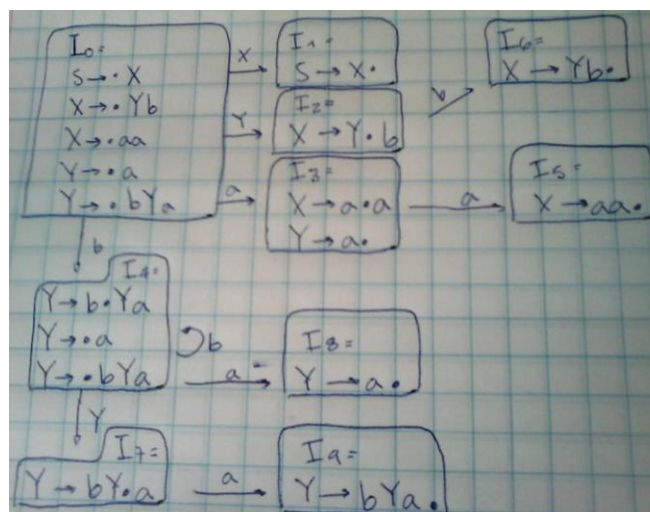 I₀=
S→·X
X→·Yb
X→·aa
Y→·a
Y→·bYa
X
I₁=
S→X·
Y
I₂=
X→Y·b
b
I₆=
X→Yb·
a
I₃=
X→a·a
Y→a·
a
I₅=
X→aa·
b
I₄=
Y→b·Ya
Y→·a
Y→·bYa
b
a
I₈=
Y→a·
Y
I₇=
Y→bY·a
a
I₉=
Y→bYa·